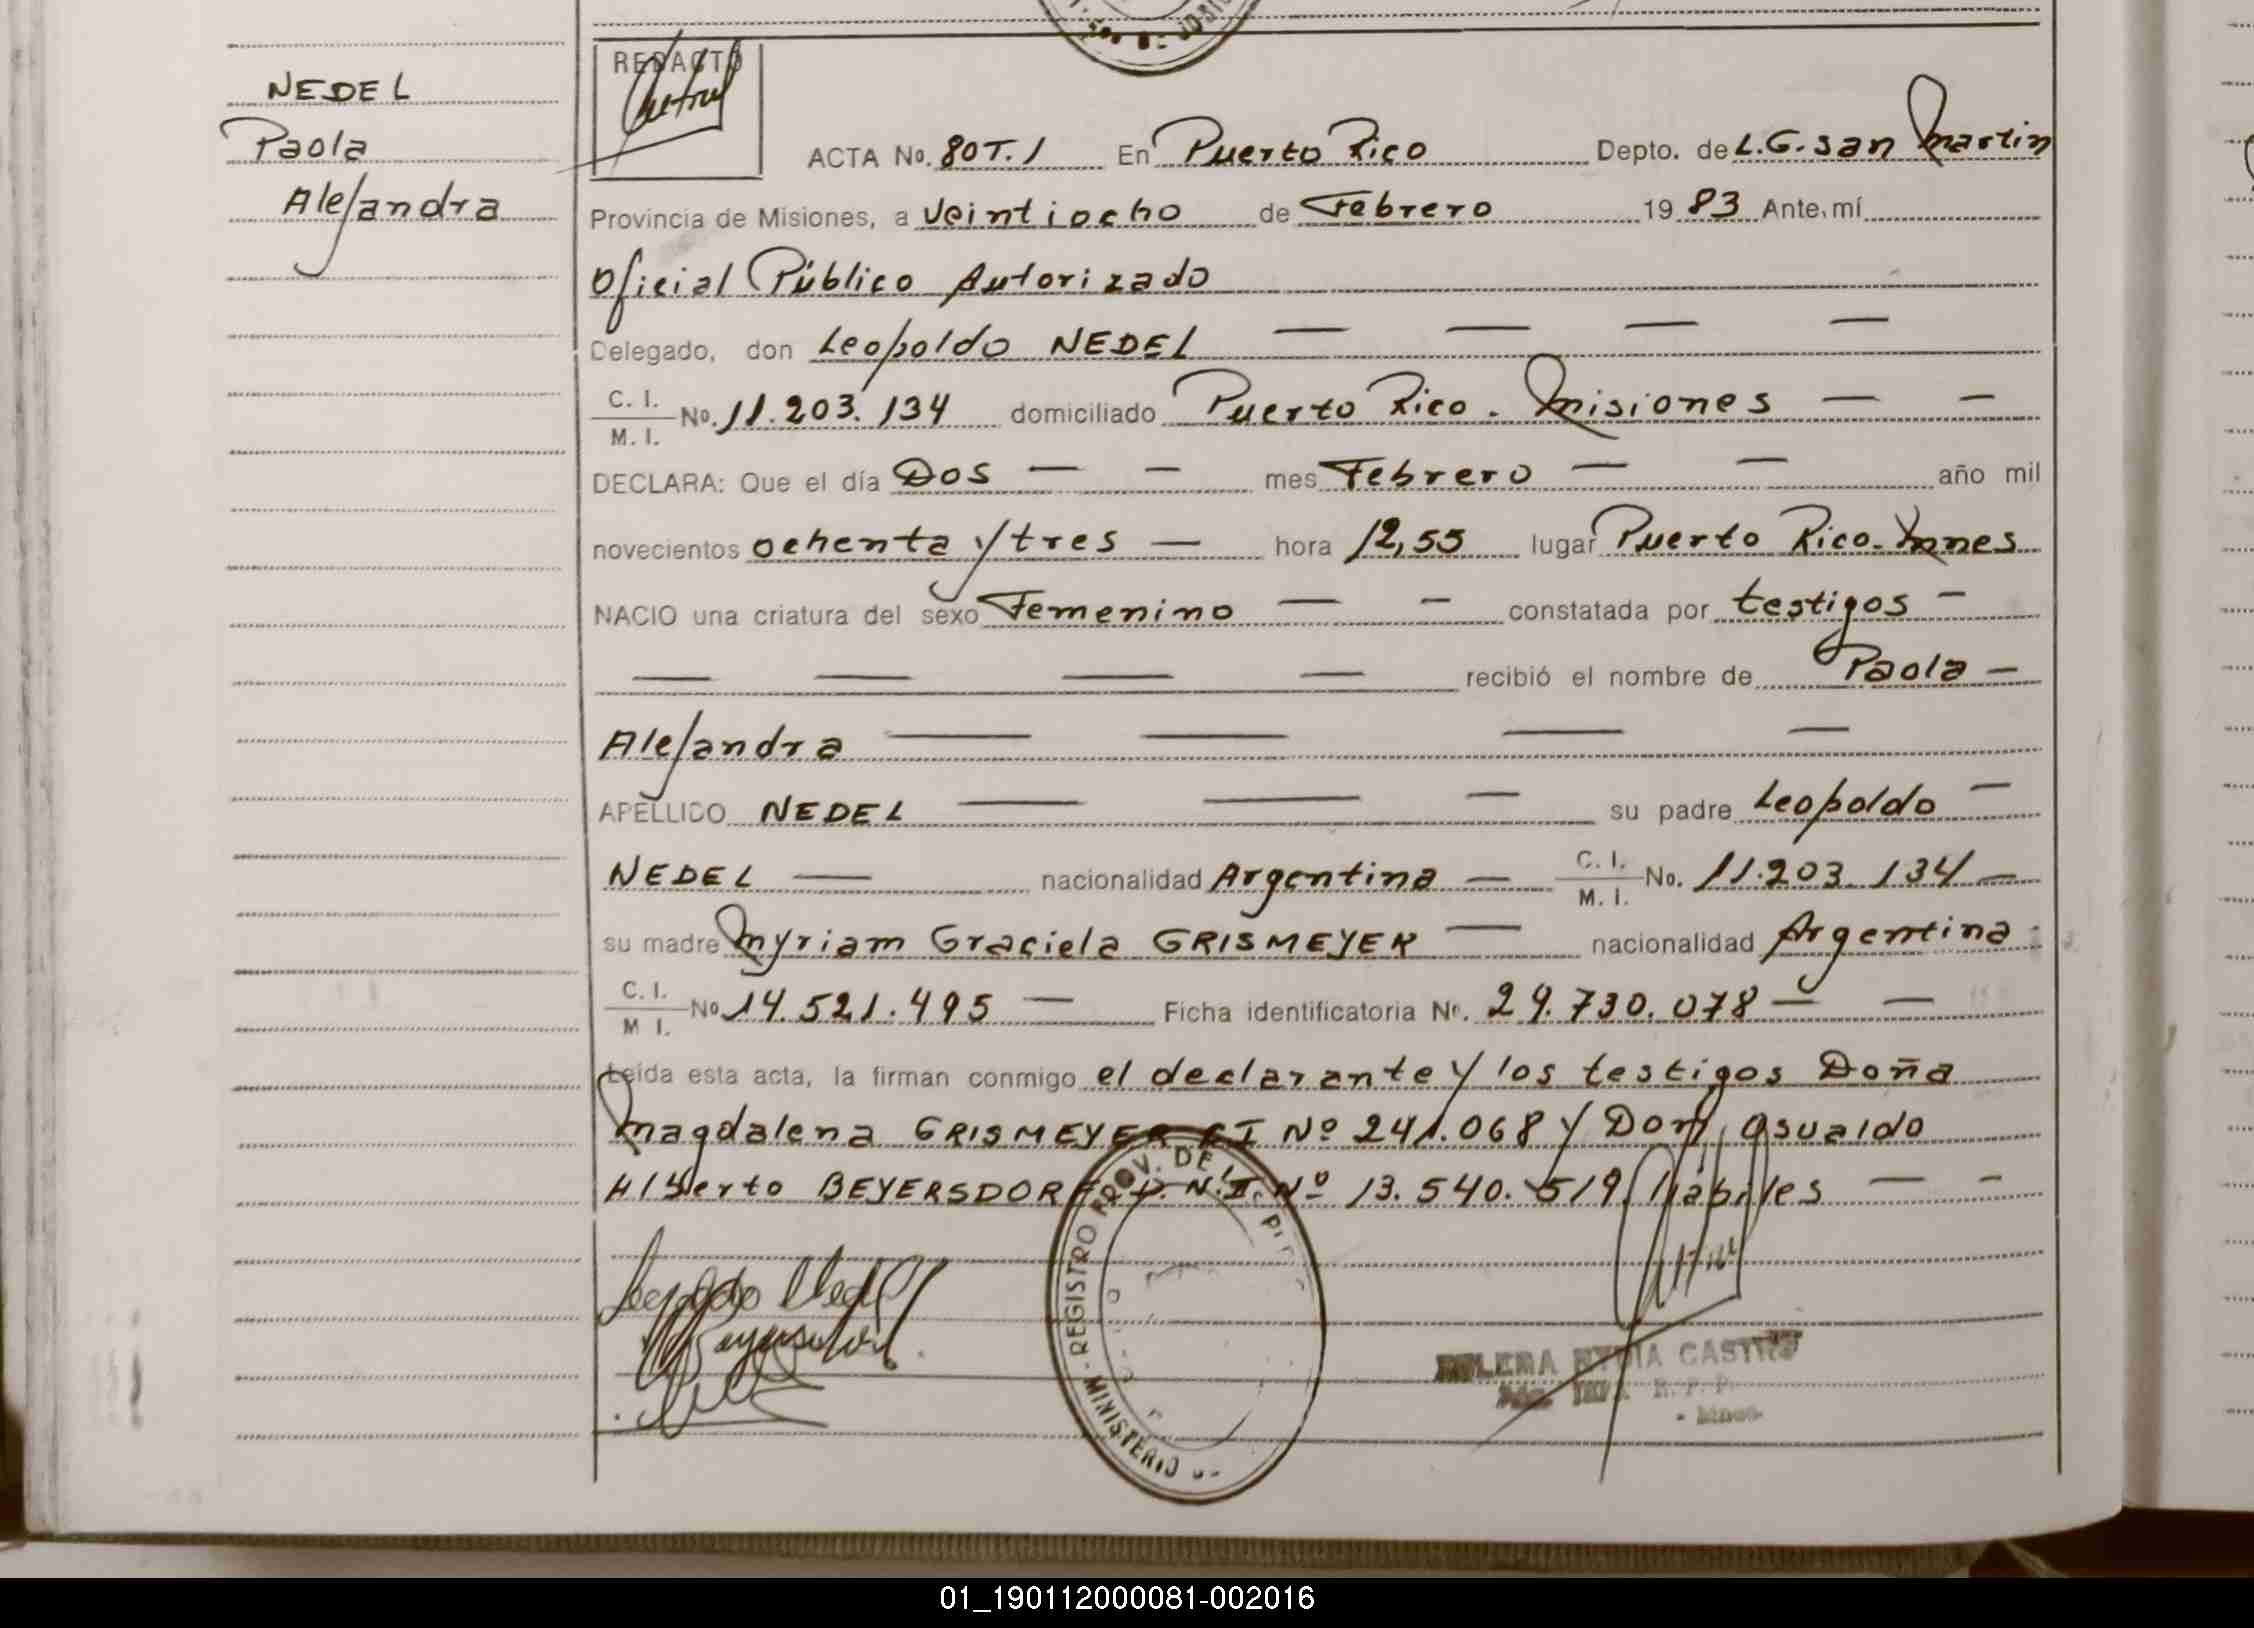 NEDEL
Paola
Alejandra
REDACTÓ
ACTA No. 80 T. 1 En Puerto Rico Depto. de L.G. San Martin
Provincia de Misiones, a veintiocho de Febrero 1983 Ante, mí
Oficial Público Autorizado
Delegado, don Leopoldo NEDEL — — — —
C. I.
M. I. No. 11.203.134 domiciliado Puerto Rico. Misiones — —
DECLARA: Que el día Dos — — mes Febrero — — año mil
novecientos ochenta y tres — hora 12,55 lugar Puerto Rico. Mnes
NACIO una criatura del sexo Femenino — — constatada por testigos —
— — — — recibió el nombre de Paola —
Alejandra — — — —
APELLIDO NEDEL — — — su padre Leopoldo —
NEDEL — nacionalidad Argentina — C. I.
M. I. No. 11.203.134 —
su madre Myriam Graciela GRISMEYER — nacionalidad Argentina
C. I.
M I. No 14.521.495 — Ficha identificatoria No. 29.730.078 — —
Leída esta acta, la firman conmigo el declarante y los testigos Doña
Magdalena GRISMEYER CI Nº 241.068 y Don Osvaldo
Alberto BEYERSDORF D.N.I Nº 13.540.519. Hábiles — —
Leopoldo Nedel
REGISTRO PROV. DE
MINISTERIO
CASTRO
01_190112000081-002016